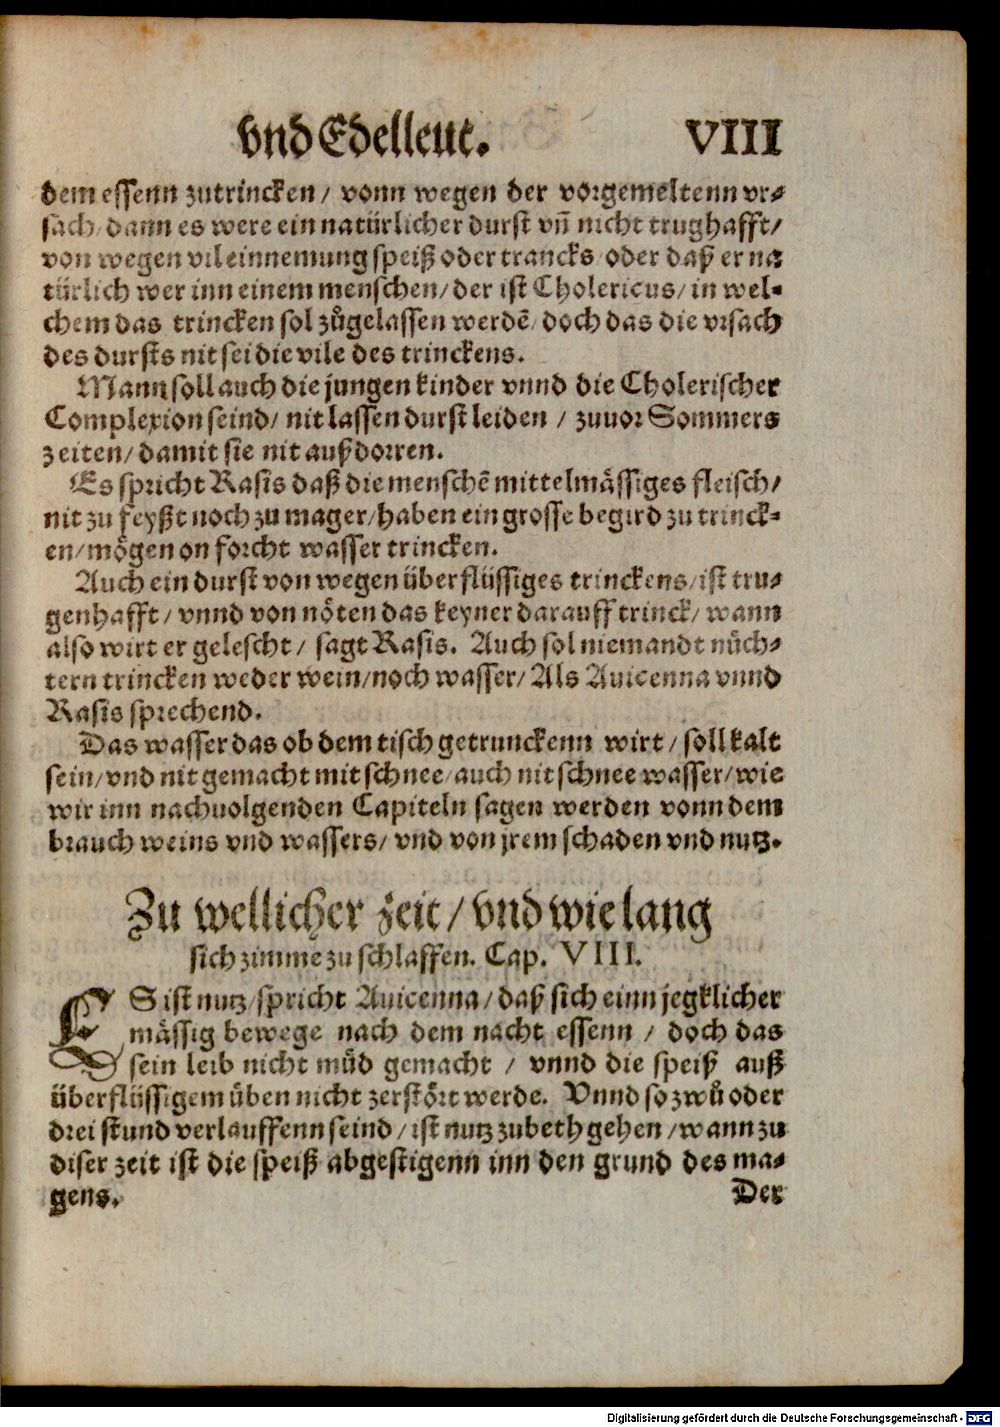 vnd Edelleut. VIII
dem essenn zutrincken / vonn wegen der vorgemeltenn vr⸗
sach / dann es were ein natürlicher durst vn̄ nicht trughafft /
von wegen vil einnemung speiß oder trancks / oder daß er na
türlich wer inn einem menschen / der ist Cholericus / in wel⸗
chem das trincken sol zůgelassen werdē / doch das die vrsach
des dursts nit sei die vile des trinckens.
Mann soll auch die jungen kinder vnnd die Cholerischer
Complexion seind / nit lassen durst leiden / zuuor Sommers
zeiten / damit sie nit außdorren.
Es spricht Rasis daß die menschē mittelmässiges fleisch /
nit zu feyßt noch zu mager / haben ein grosse begird zu trinck⸗
en / mögen on forcht wasser trincken.
Auch ein durst von wegen überflüssiges trinckens / ist tru⸗
genhafft / vnnd von nöten das keyner darauff trinck / wann
also wirt er gelescht / sagt Rasis. Auch sol niemandt nüch⸗
tern trincken weder wein / noch wasser / Als Auicenna vnnd
Rasis sprechend.
Das wasser das ob dem tisch getrunckenn wirt / soll kalt
sein / vnd nit gemacht mit schnee / auch nit schnee wasser / wie
wir inn nachuolgenden Capiteln sagen werden vonn dem
brauch weins vnd wassers / vnd von jrem schaden vnd nutz.
Zu wellicher zeit / vnd wie lang
sich zimme zu schlaffen. Cap. VIII.
ES ist nutz / spricht Auicenna / daß sich einn jegklicher
mässig bewege nach dem nacht essenn / doch das
sein leib nicht müd gemacht / vnnd die speiß auß
überflüssigem üben nicht zerstört werde. Vnnd so zwů oder
drei stund verlauffenn seind / ist nutz zu beth gehen / wann zu
diser zeit ist die speiß abgestigenn inn den grund des ma⸗
gens. Der
Digitalisierung gefördert durch die Deutsche Forschungsgemeinschaft - DFG